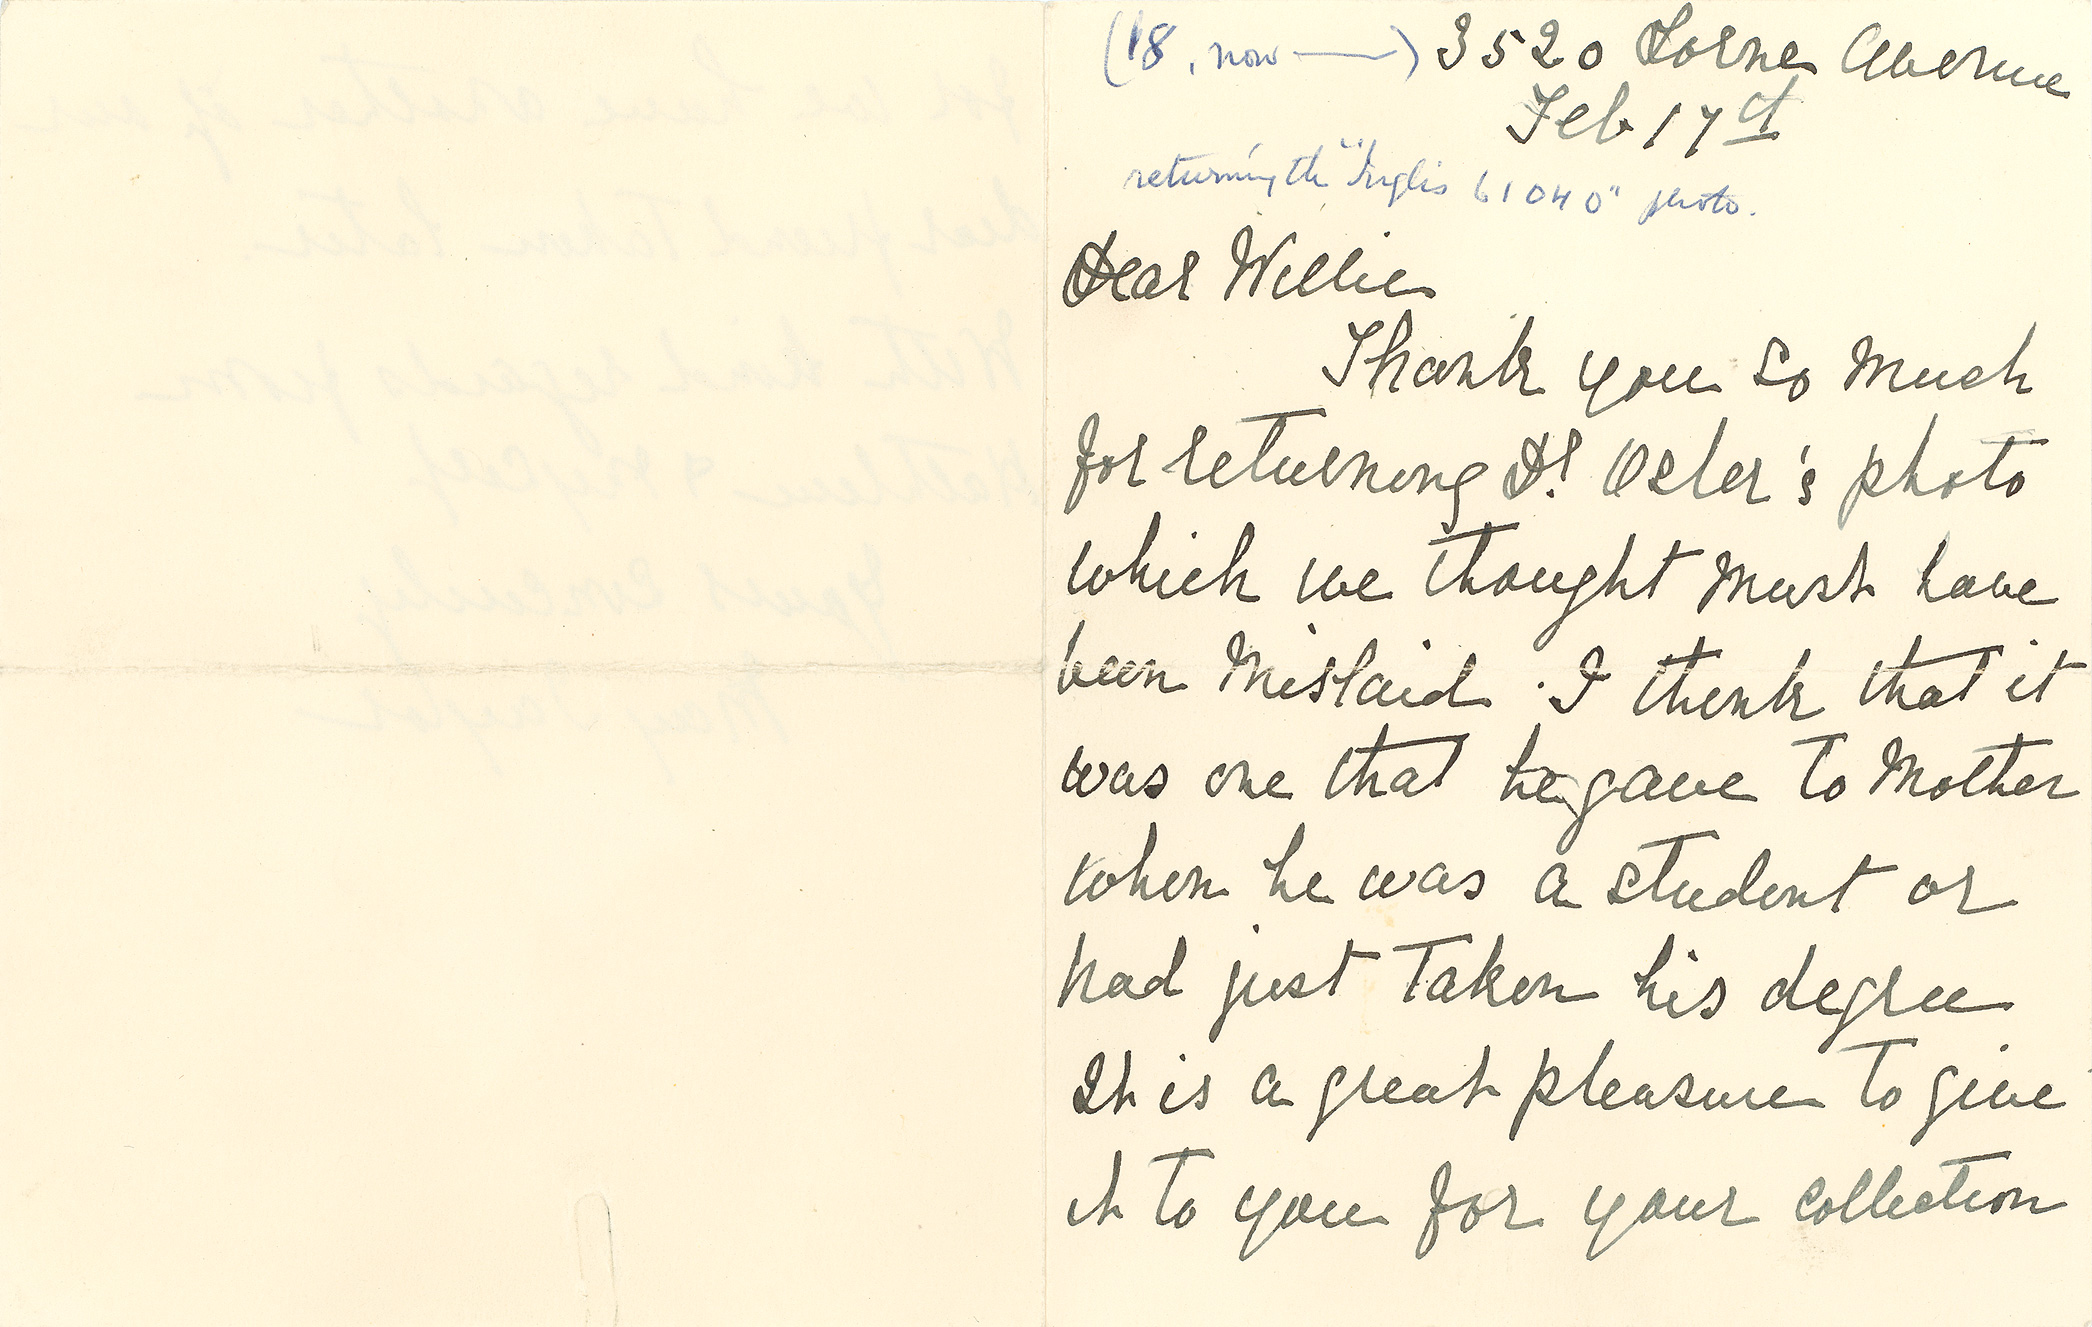 (18, now —) 3520 Lorne Avenue
Feb 17th
returning the "Inglis 61040" photo.
Dear Willie
Thank you so much
for returning Dr Osler's photo
which we thought must have
been mislaid. I think that it
was one that he gave to Mother
when he was a student or
had just taken his degree
It is a great pleasure to give
it to you for your collection
for we have another of our
dear friend taken later.
With kind regards from
& myself
Yours sincerely
May Taylor